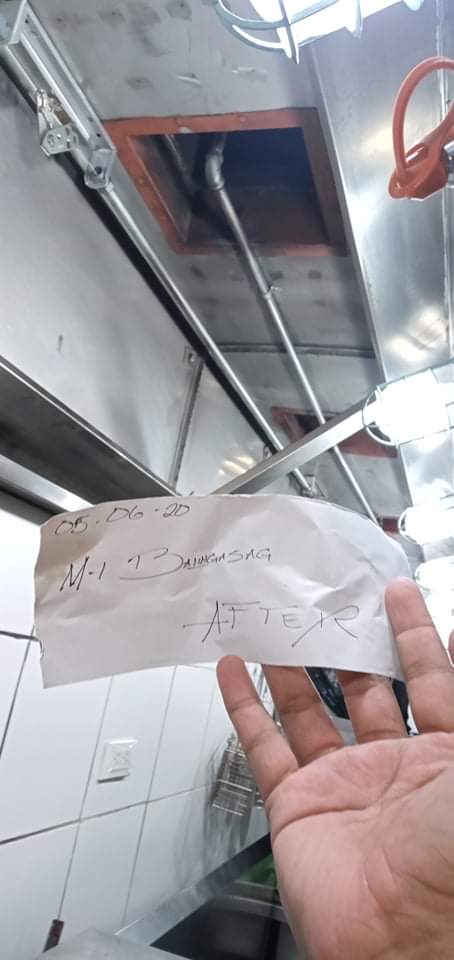 05-06-20
M-1 BALINGASAG
AFTER